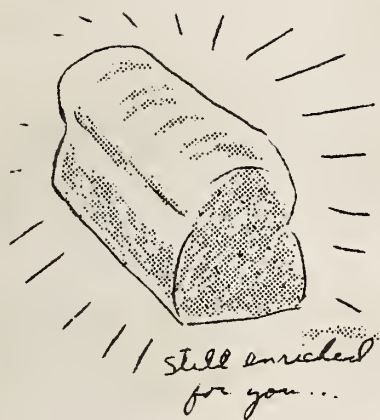 still enriched
for you...